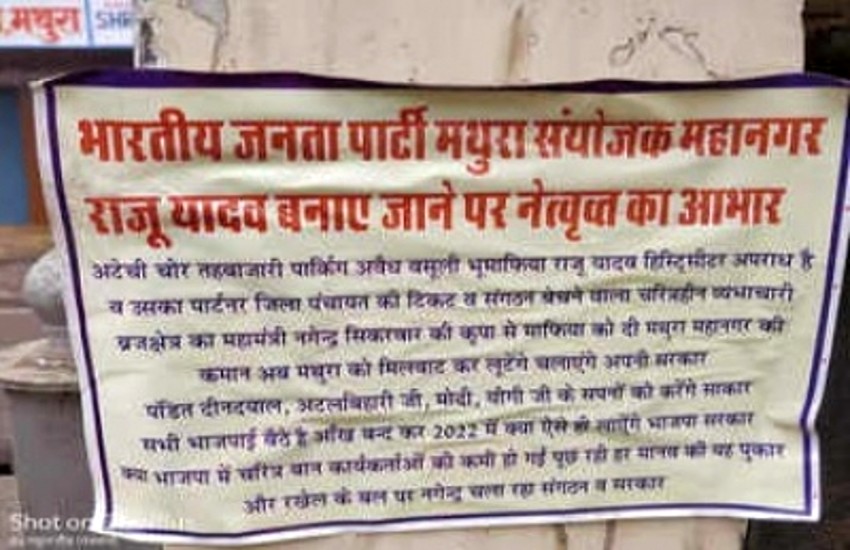 मथुरा
भारतीय जनता पार्टी मथुरा संयोजक महानगर
राजू यादव बनाए जाने पर नेत्वृव्त का आभार
अटेची चोर तहबाजारी पार्किंग अवैध वसूली भूमाफिया राजू यादव हिस्ट्रिसीटर अपराध है
व उसका पार्टनर जिला पंचायत की टिकट व संगठन बेचने वाला चरित्रहीन व्यभाचारी
ब्रजक्षेत्र का महामंत्री नगेन्द्र सिकरवार की कृपा से माफिया को दी मथुरा महानगर की
कमान अब मथुरा को मिलवाट कर लूटेंगे चलाएंगे अपनी सरकार
पंडित दीनदयाल, अटलबिहारी जी, मोदी, योगी जी के सपनों को करेंगे साकार
सभी भाजपाई बैठे है आँख बन्द कर 2022 में क्या ऐसे ही लाऐंगे भाजपा सरकार
क्या भाजपा में चरित्र वान कार्यकर्ताओं की कमी हो गई पूछ रही हर मानव की यह पुकार
और रखैल के बल पर नगेन्द्र चला रहा संगठन व सरकार
Shot on